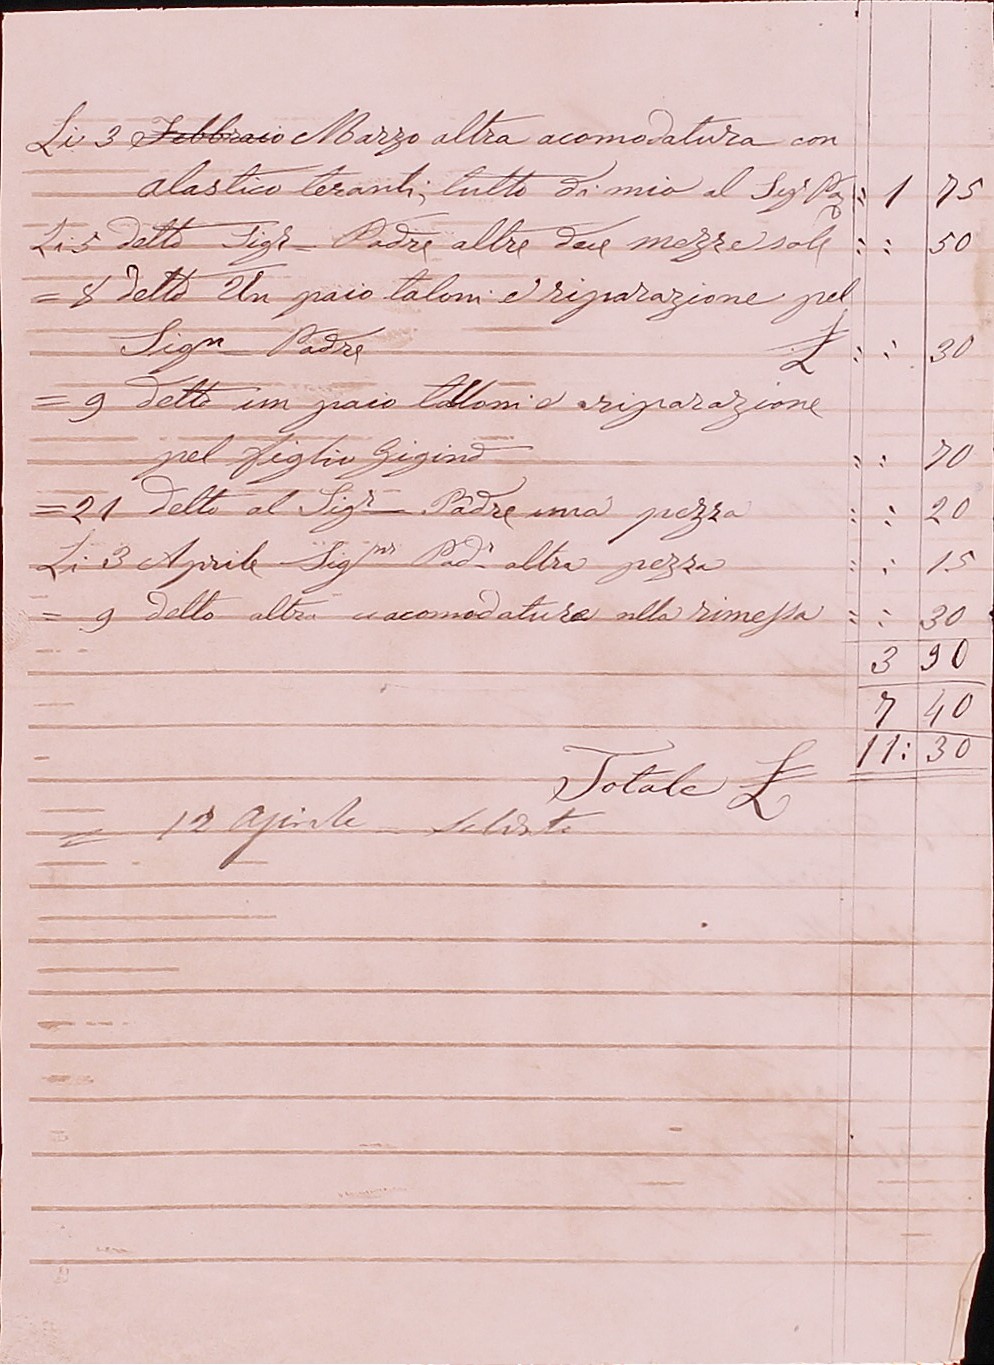 Li 3 Febbraio Marzo altra acomodatura con
alastico teranti; tutto di mio al Sigr Pad := 1 75
Li 5 detto Sigr Padre altre due mezze sole : : 50
= 8 detto Un paio taloni e riparazione pel
Sign Padre £ : : 30
= 9 detto un paio talloni e riparazione
pel figlio Gigino : : 70
= 21 detto al Sigr Padre una pezza : : 20
Li 3 Aprile Sigr Padr altra pezza : : 15
= 9 detto altra acomodatura nlla rimessa : : 30
3 90
7 40
11: 30
Totale £
= 12 Aprile Saldato